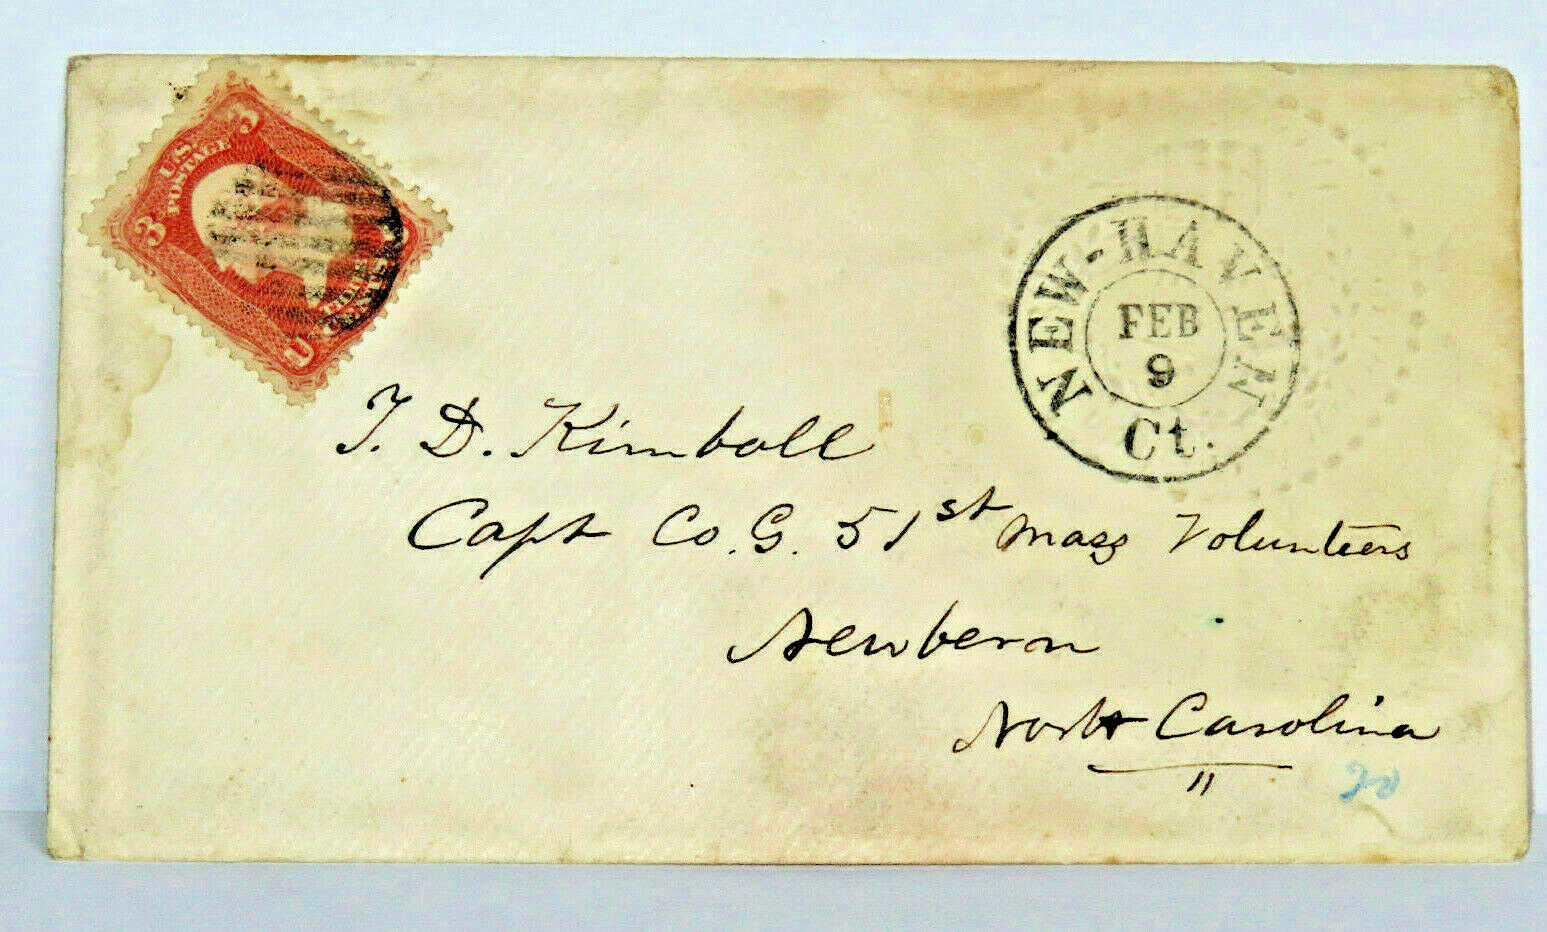 U.S.
POSTAGE
3 3
U
NEW-HAVEN
FEB
9
Ct.
T. D. Kimball
Capt Co. G. 51st Mass Volunteers
Newbern
North Carolina
20